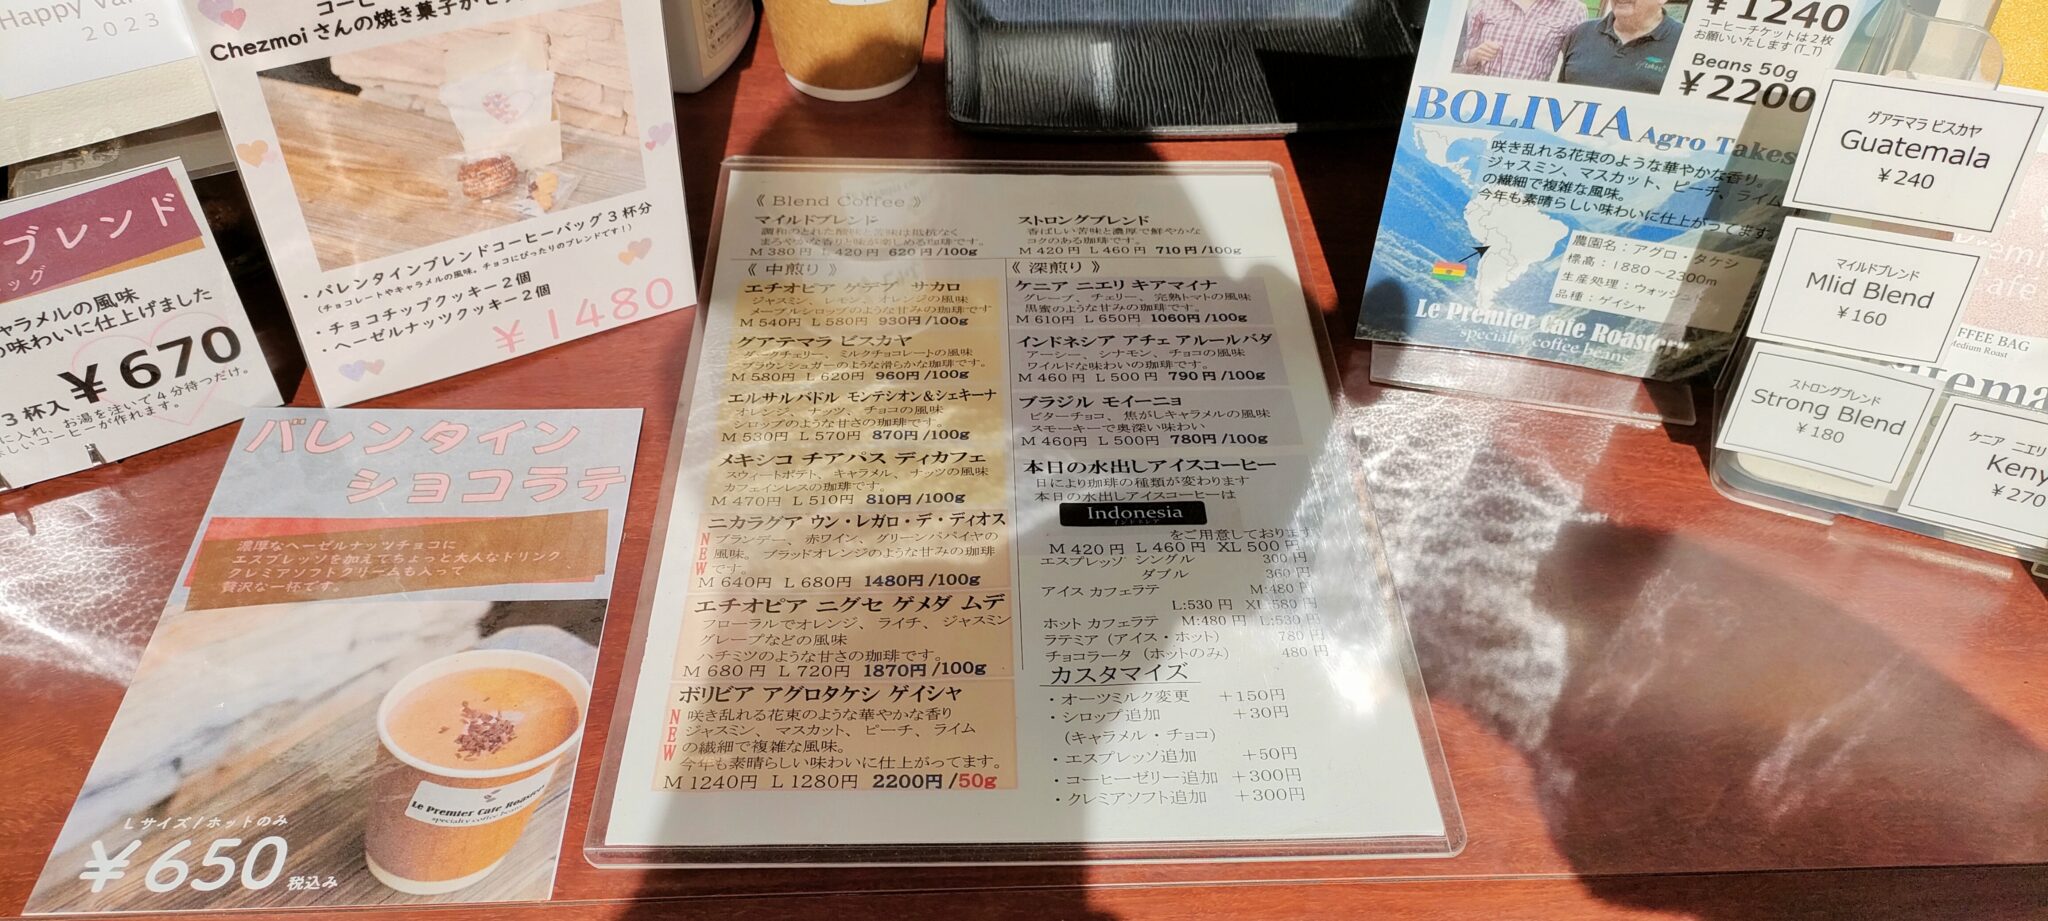 Happy Val
2023
Chezmoiさんの焼き菓子が
・バレンタインブレンドコーヒーバッグ3杯分
(チョコレートやキャラメルの風味。チョコにぴったりのブレンドです！)
・チョコチップクッキー2個
・ヘーゼルナッツクッキー2個
¥1480
ブレンド
ッグ
ャラメルの風味
味わいに仕上げました
¥670
3杯入
に入れ、お湯を注いで4分待つだけ。
しいコーヒーが作れます。
バレンタイン
ショコラテ
濃厚なヘーゼルナッツチョコに
エスプレッソを加えてちょっと大人なドリンク
クレミアソフトクリームも入って
贅沢な一杯です。
Le Premier Cafe Roastery
specialty coffee beans
Lサイズ/ホットのみ
¥650 税込み
《 Blend Coffee 》
マイルドブレンド
調和のとれた酸味と苦味は低抗なく
まろやかな香りと味が楽しめる珈琲です。
M 380円 L 420円 620円/100g
ストロングブレンド
香ばしい苦味と濃厚で鮮やかな
コクのある珈琲です。
M 420円 L 460円 710円/100g
《 中煎り 》
エチオピア ゲデブ サカロ
ジャスミン、レモン、オレンジの風味
メープルシロップのような甘みの珈琲です
M 540円 L 580円 930円/100g
グアテマラ ビスカヤ
ダークチェリー、ミルクチョコレートの風味
ブラウンシュガーのような滑らかな珈琲です。
M 580円 L 620円 960円/100g
エルサルバドル モンテシオン&シェキーナ
オレンジ、ナッツ、チョコの風味
シロップのような甘さの珈琲です。
M 530円 L 570円 870円/100g
メキシコ チアパス ディカフェ
スウィートポテト、キャラメル、ナッツの風味
カフェインレスの珈琲です。
M 470円 L 510円 810円/100g
ニカラグア ウン・レガロ・デ・ディオス
NEW
ブランデー、赤ワイン、グリーンパパイヤの
風味。ブラッドオレンジのような甘みの珈琲
です。
M 640円 L 680円 1480円/100g
エチオピア ニグセ ゲメダ ムデ
フローラルでオレンジ、ライチ、ジャスミン
グレープなどの風味
ハチミツのような甘さの珈琲です。
M 680円 L 720円 1870円/100g
ボリビア アグロタケシ ゲイシャ
NEW
咲き乱れる花束のような華やかな香り
ジャスミン、マスカット、ピーチ、ライム
の繊細で複雑な風味。
今年も素晴らしい味わいに仕上がってます。
M 1240円 L 1280円 2200円/50g
《 深煎り 》
ケニア ニエリ キアマイナ
グレープ、チェリー、完熟トマトの風味
黒蜜のような甘みの珈琲です。
M 610円 L 650円 1060円/100g
インドネシア アチェ アルールバダ
アーシー、シナモン、チョコの風味
ワイルドな味わいの珈琲です。
M 460円 L 500円 790円/100g
ブラジル モイーニョ
ビターチョコ、焦がしキャラメルの風味
スモーキーで奥深い味わい
M 460円 L 500円 780円/100g
本日の水出しアイスコーヒー
日により珈琲の種類が変わります
本日の水出しアイスコーヒーは
Indonesia
インドネシア
をご用意しております
M 420円 L 460円 XL 500円
エスプレッソ シングル 300円
ダブル 360円
アイス カフェラテ M:480円
L:530円 XL:580円
ホット カフェラテ M:480円 L:530円
ラテミア (アイス・ホット) 780円
チョコラータ (ホットのみ) 480円
カスタマイズ
・オーツミルク変更 +150円
・シロップ追加 +30円
(キャラメル・チョコ)
・エスプレッソ追加 +50円
・コーヒーゼリー追加 +300円
・クレミアソフト追加 +300円
¥1240
コーヒーチケットは2枚
お願いいたします(T_T)
Beans 50g
¥2200
BOLIVIA Agro Takes
咲き乱れる花束のような華やかな香り。
ジャスミン、マスカット、ピーチ、ライム
の繊細で複雑な風味。
今年も素晴らしい味わいに仕上がってます。
農園名：アグロ・タケシ
標高：1880～2300m
生産処理：ウォッシュド
品種：ゲイシャ
Le Premier Cafe Roastery
specialty coffee beans
グアテマラ ビスカヤ
Guatemala
¥240
マイルドブレンド
MIid Blend
¥160
ストロングブレンド
Strong Blend
¥180
ケニア ニエリ
Keny
¥270
FFEE BAG
Medium Roast